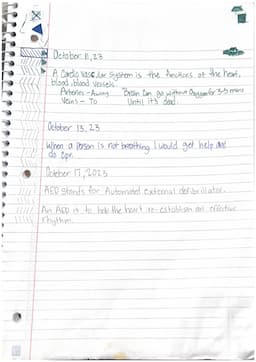 October 11, 23
A Cardio Vascular System is the functions of the heart,
blood, blood vessels.
Arteries - Away Brain Can go without Oxygen for 3-5 mins
Veins - To Until it's dead.
October 13, 23
When a person is not breathing I would get help and
do cpr.
October 17, 2023
AED Stands for Automated external defibrillator.
An AED is to help the heart re-establish an effective
rhythm.